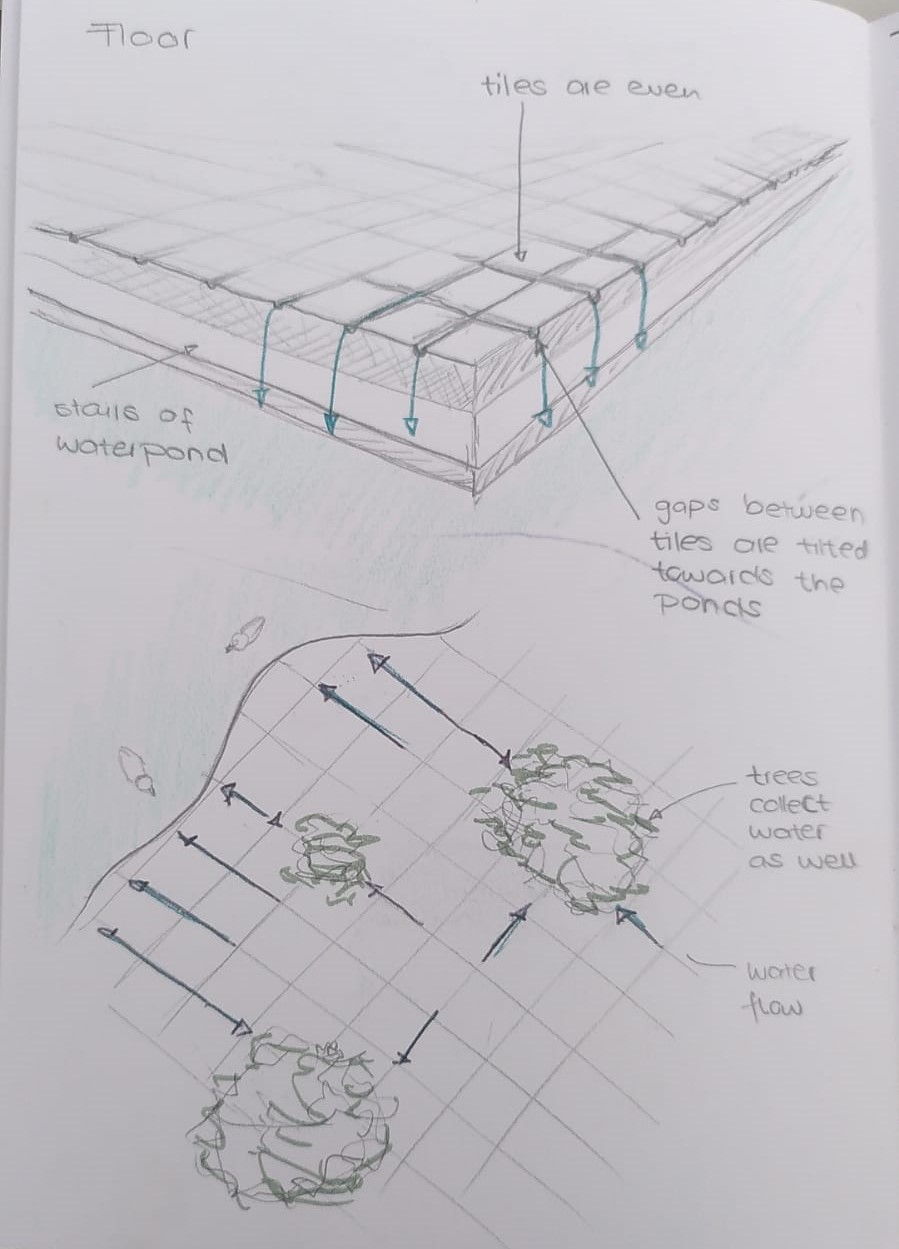 Floor
tiles are even
stairs of
waterpond
gaps between
tiles are tilted
towards the
ponds
trees
collect
water
as well
water
flow